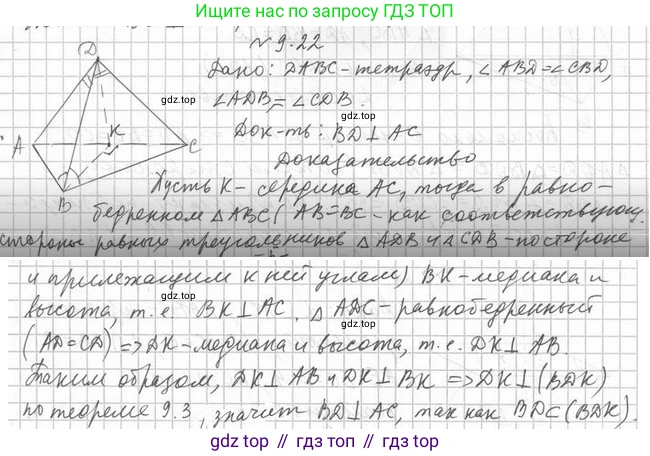 Ищите нас по запросу ГДЗ ТОП
№9.22
Дано: DABC-тетраэдр, ∠ABD=∠CBD,
gdz.top
∠ADB=∠CDB.
gdz.top
Док-ть: BD⊥AC
Доказательство
Пусть K-середина AC, тогда в равно-
бедренном △ABC (AB=BC-как соответствующ.
стороны равных треугольников △ADB и △CDB-постороне
и прилежащим к ней углам) BK-медиана и
gdz.top
высота, т.е BK⊥AC. △ADC-равнобедренный
gdz.top
(AD=CD) =>DK-медиана и высота, т.е. DK⊥AB.
Таким образом, DK⊥AB и DK⊥BK =>DK⊥(BDK)
по теореме 9.3, значит BD⊥AC, так как BD⊂(BDK).
gdz.top
D
A
K
C
B
gdz.top // гдз.top // gdz.top